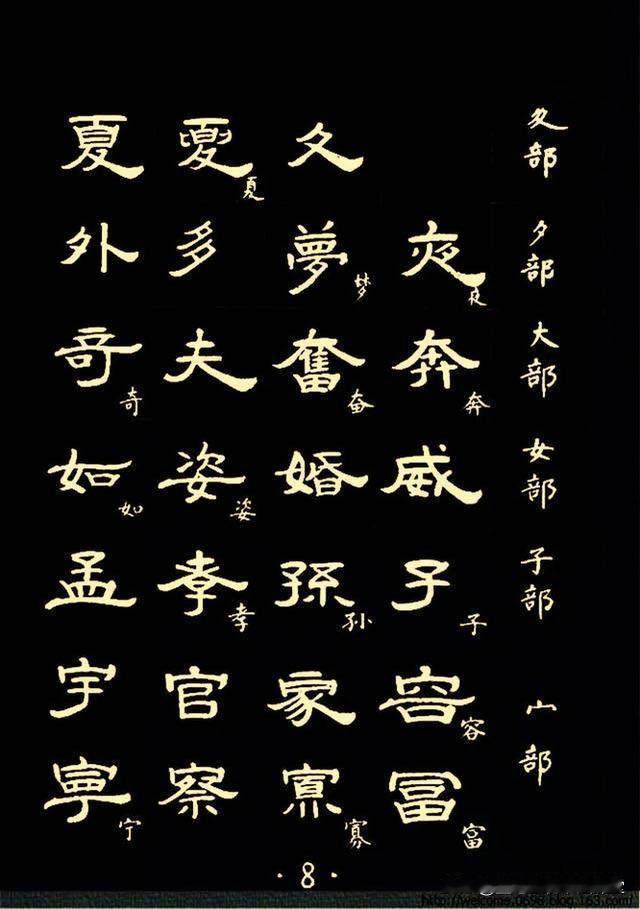 夏 夏 夏 夂 夂部
外 多 夢 梦 夜 夜 夕部
奇 奇 夫 奮 奋 奔 奔 大部
如 如 姿 姿 婚 威 女部
孟 孝 孝 孫 孙 子 子 子部
宇 官 家 容 容 宀部
寧 宁 察 寡 寡 富 富
·8·
http://welcome.0898.blog.163.com/